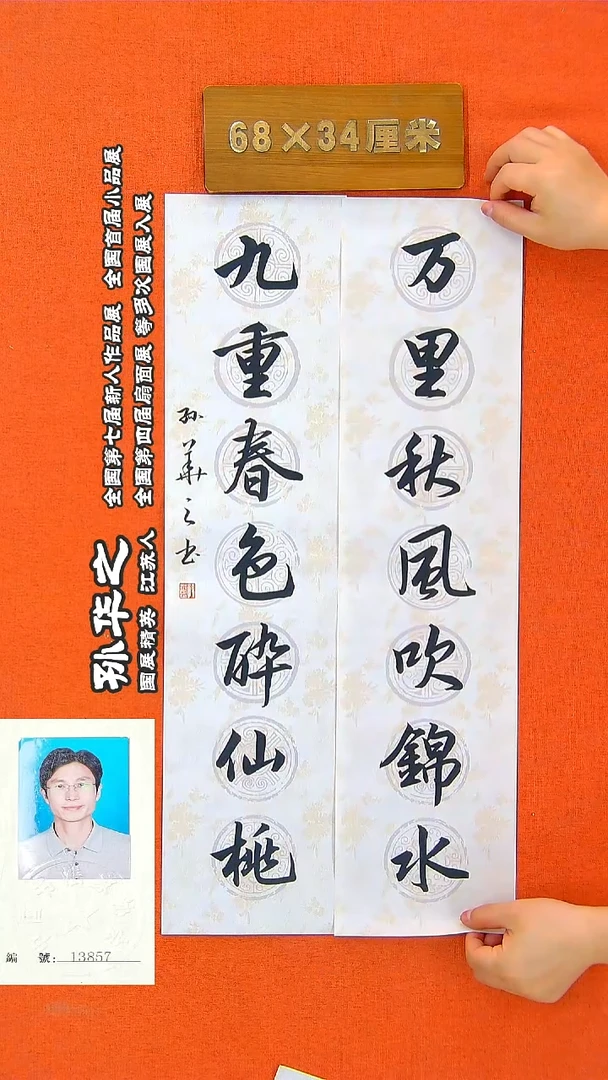 68×34厘米
万里秋風吹錦水
九重春色醉仙桃
孙華之书
孙华之
国展精英 江苏人
全国第七届新人作品展 全国首届小品展
全国第四届扇面展 等多次国展入展
編 號: 13857